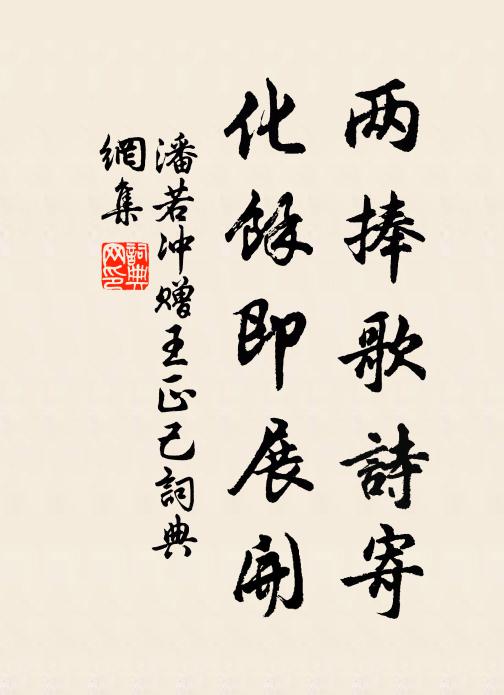 两捧歌詩寄
化餘即展開
潘若冲赠王正己詞典
網集
詞典網印